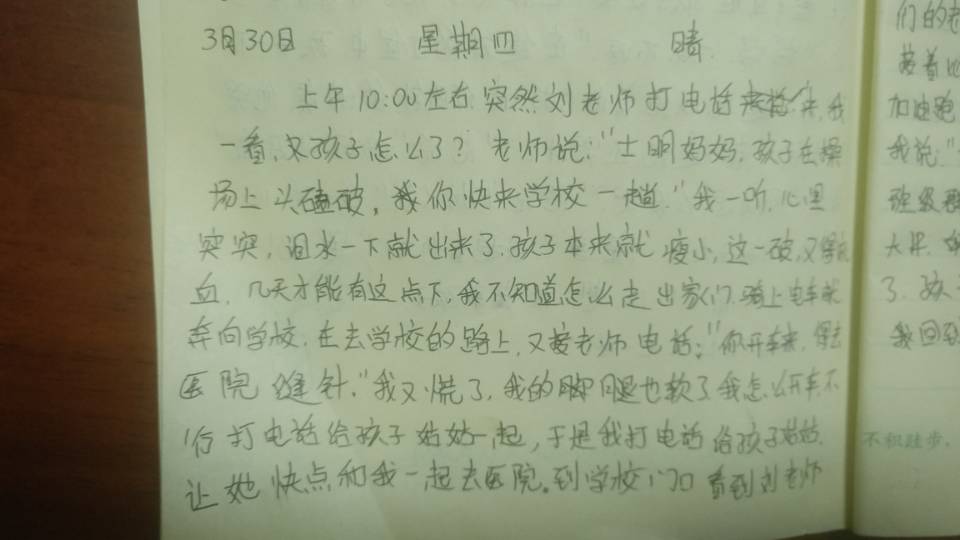 3月30日 星期四 晴
上午10:00左右突然刘老师打电话来,我
一看,又孩子怎么了?老师说:"士明妈妈,孩子在操
场上头磕破,我你快来学校一趟."我一听,心里
突突,泪水一下就出来了.孩子本来就瘦小,这一破,又
血,几天才能有这点下,我不知道怎么走出家门.骑上电车就
奔向学校.在去学校的路上,又接老师电话:"你开车来,得去
医院缝针."我又慌了,我的脚腿也软了我怎么开车不
行打电话给孩子姑姑一起,于是我打电话给孩子姑姑.
让她快点和我一起去医院。到学校门口看到刘老师
们的
加油
我说."
班级群
大
3.孩
我回到
不积跬步,